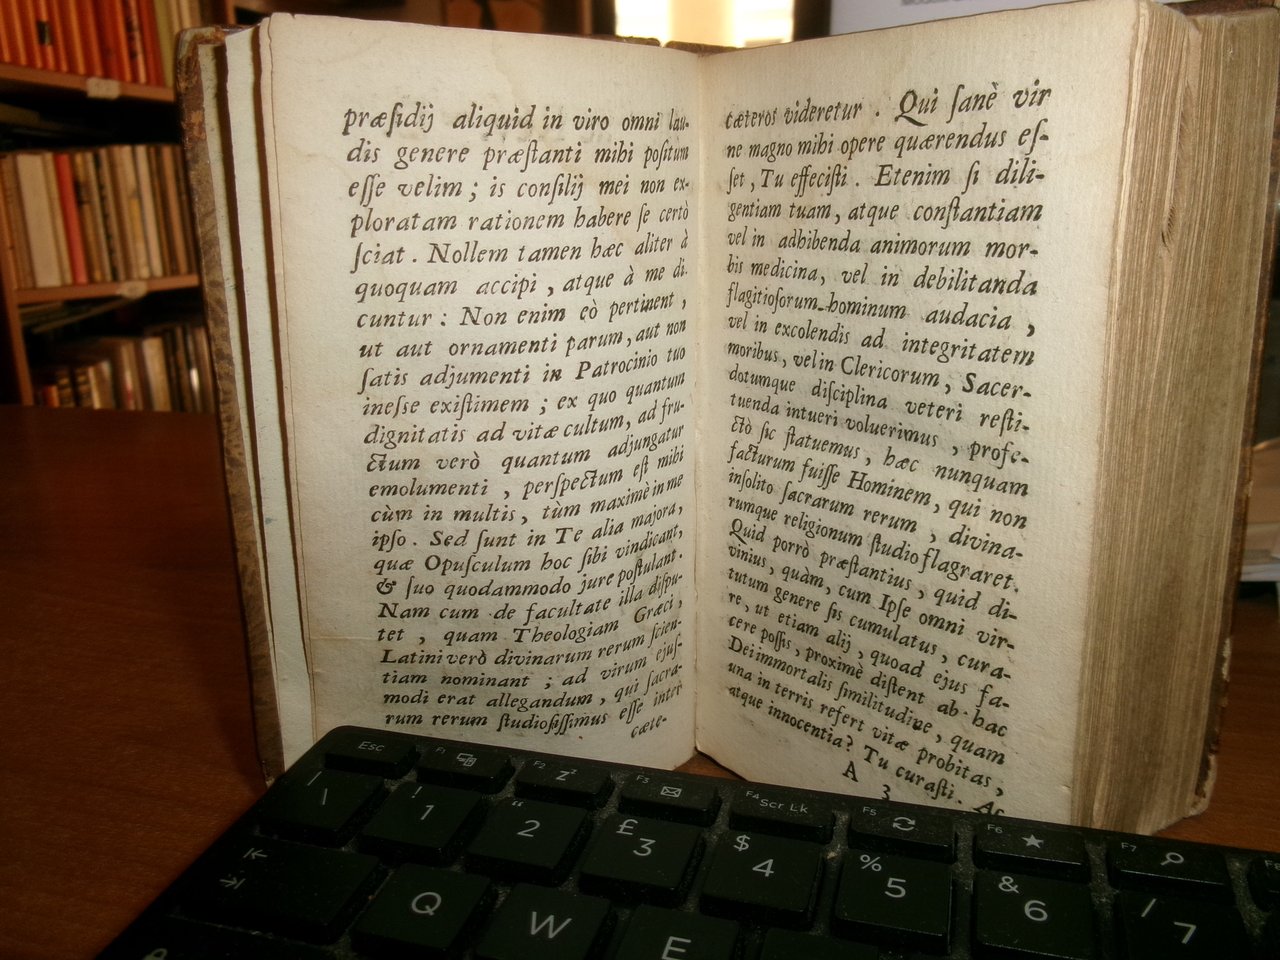 præſidij aliquid in viro omni lau-
dis genere præſtanti mihi poſitum
eſſe velim ; is conſilij mei non ex-
ploratam rationem habere ſe certò
ſciat . Nollem tamen hæc aliter à
quoquam accipi , atque à me di-
cuntur : Non enim eò pertinent ,
ut aut ornamenti parum, aut non
ſatis adjumenti in Patrocinio tuo
ineſse exiſtimem ; ex quo quantum
dignitatis ad vitæ cultum, ad fru-
ctum verò quantum adjungatur
emolumenti , perſpectum eſt mihi
cùm in multis, tùm maximè in me
ipſo . Sed ſunt in Te alia majora,
quæ Opuſculum hoc ſibi vindicant,
& ſuo quodammodo jure poſtulant.
Nam cum de facultate illa diſpu-
tet , quam Theologiam Græci ,
Latini verò divinarum rerum ſcien-
tiam nominant ; ad virum ejuſ-
modi erat allegandum , qui ſacra-
rum rerum ſtudioſiſſimus eſſe inter
cæte-
cæteros videretur . Qui ſanè vir
ne magno mihi opere quærendus eſ-
ſet , Tu effeciſti . Etenim ſi dili-
gentiam tuam, atque conſtantiam
vel in adhibenda animorum mor-
bis medicina, vel in debilitanda
flagitioſorum hominum audacia ,
vel in excolendis ad integritatem
moribus, vel in Clericorum, Sacer-
dotumque diſciplina veteri reſti-
tuenda intueri voluerimus , profe-
ctò ſic ſtatuemus, hæc nunquam
facturum fuiſſe Hominem, qui non
inſolito ſacrarum rerum , divina-
rumque religionum ſtudio flagraret.
Quid porrò præſtantius, quid di-
vinius, quàm, cum Ipſe omni vir-
tutum genere ſis cumulatus, cura-
re, ut etiam alij, quoad ejus fa-
cere poſſis, proximè diſtent ab hac
Dei immortalis ſimilitudine, quam
una in terris refert vitæ probitas,
atque innocentia? Tu curaſti. Ac
A 3
Esc F1 F2 Zz F3 F4 Scr Lk F5 F6 F7
| \ ! 1 “ 2 £ 3 $ 4 % 5 & 6 / 7
Q W E